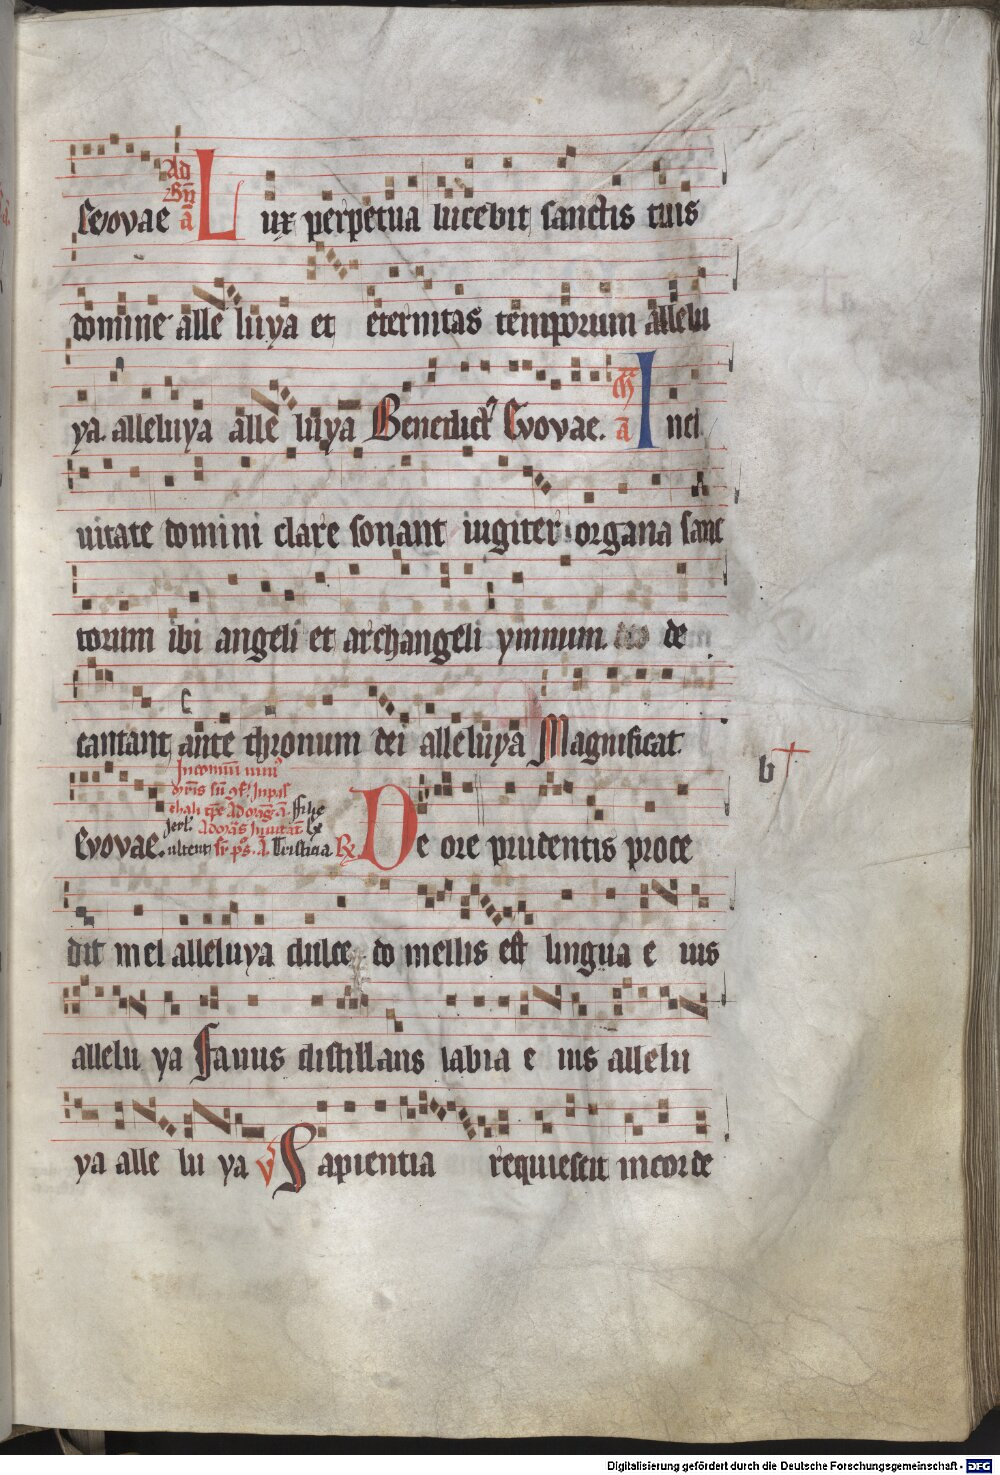 Seuouae Ad Bñ ā Lux perpetua lucebit sanctis tuis
domine alle luya et eternitas temporum allelu
ya. alleluya alle luya Benedict⁹ Euouae. ā In ci
uitate domini clare sonant iugiter organa sanc
torum ibi angeli et archangeli ymnum de
cantant ante thronum dei alleluya Magnificat.
b
Euouae. Tristicia De ore prudentis proce
dit mel alleluya dulce do mellis est lingua e ius
allelu ya Fauus distillans labia e ius allelu
ya alle lu ya V Sapientia requiescit in corde
82
Digitalisierung gefördert durch die Deutsche Forschungsgemeinschaft - DFG